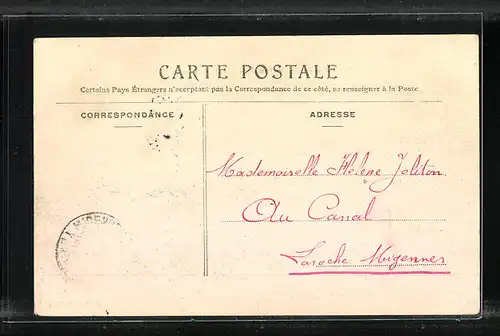 CARTE POSTALE
Certains Pays Étrangers n'acceptant pas la Correspondance de ce côté, se renseigner à la Poste
CORRESPONDANCE
ADRESSE
Mademoiselle Helene Joliton
Au Canal
Laroche Migennes